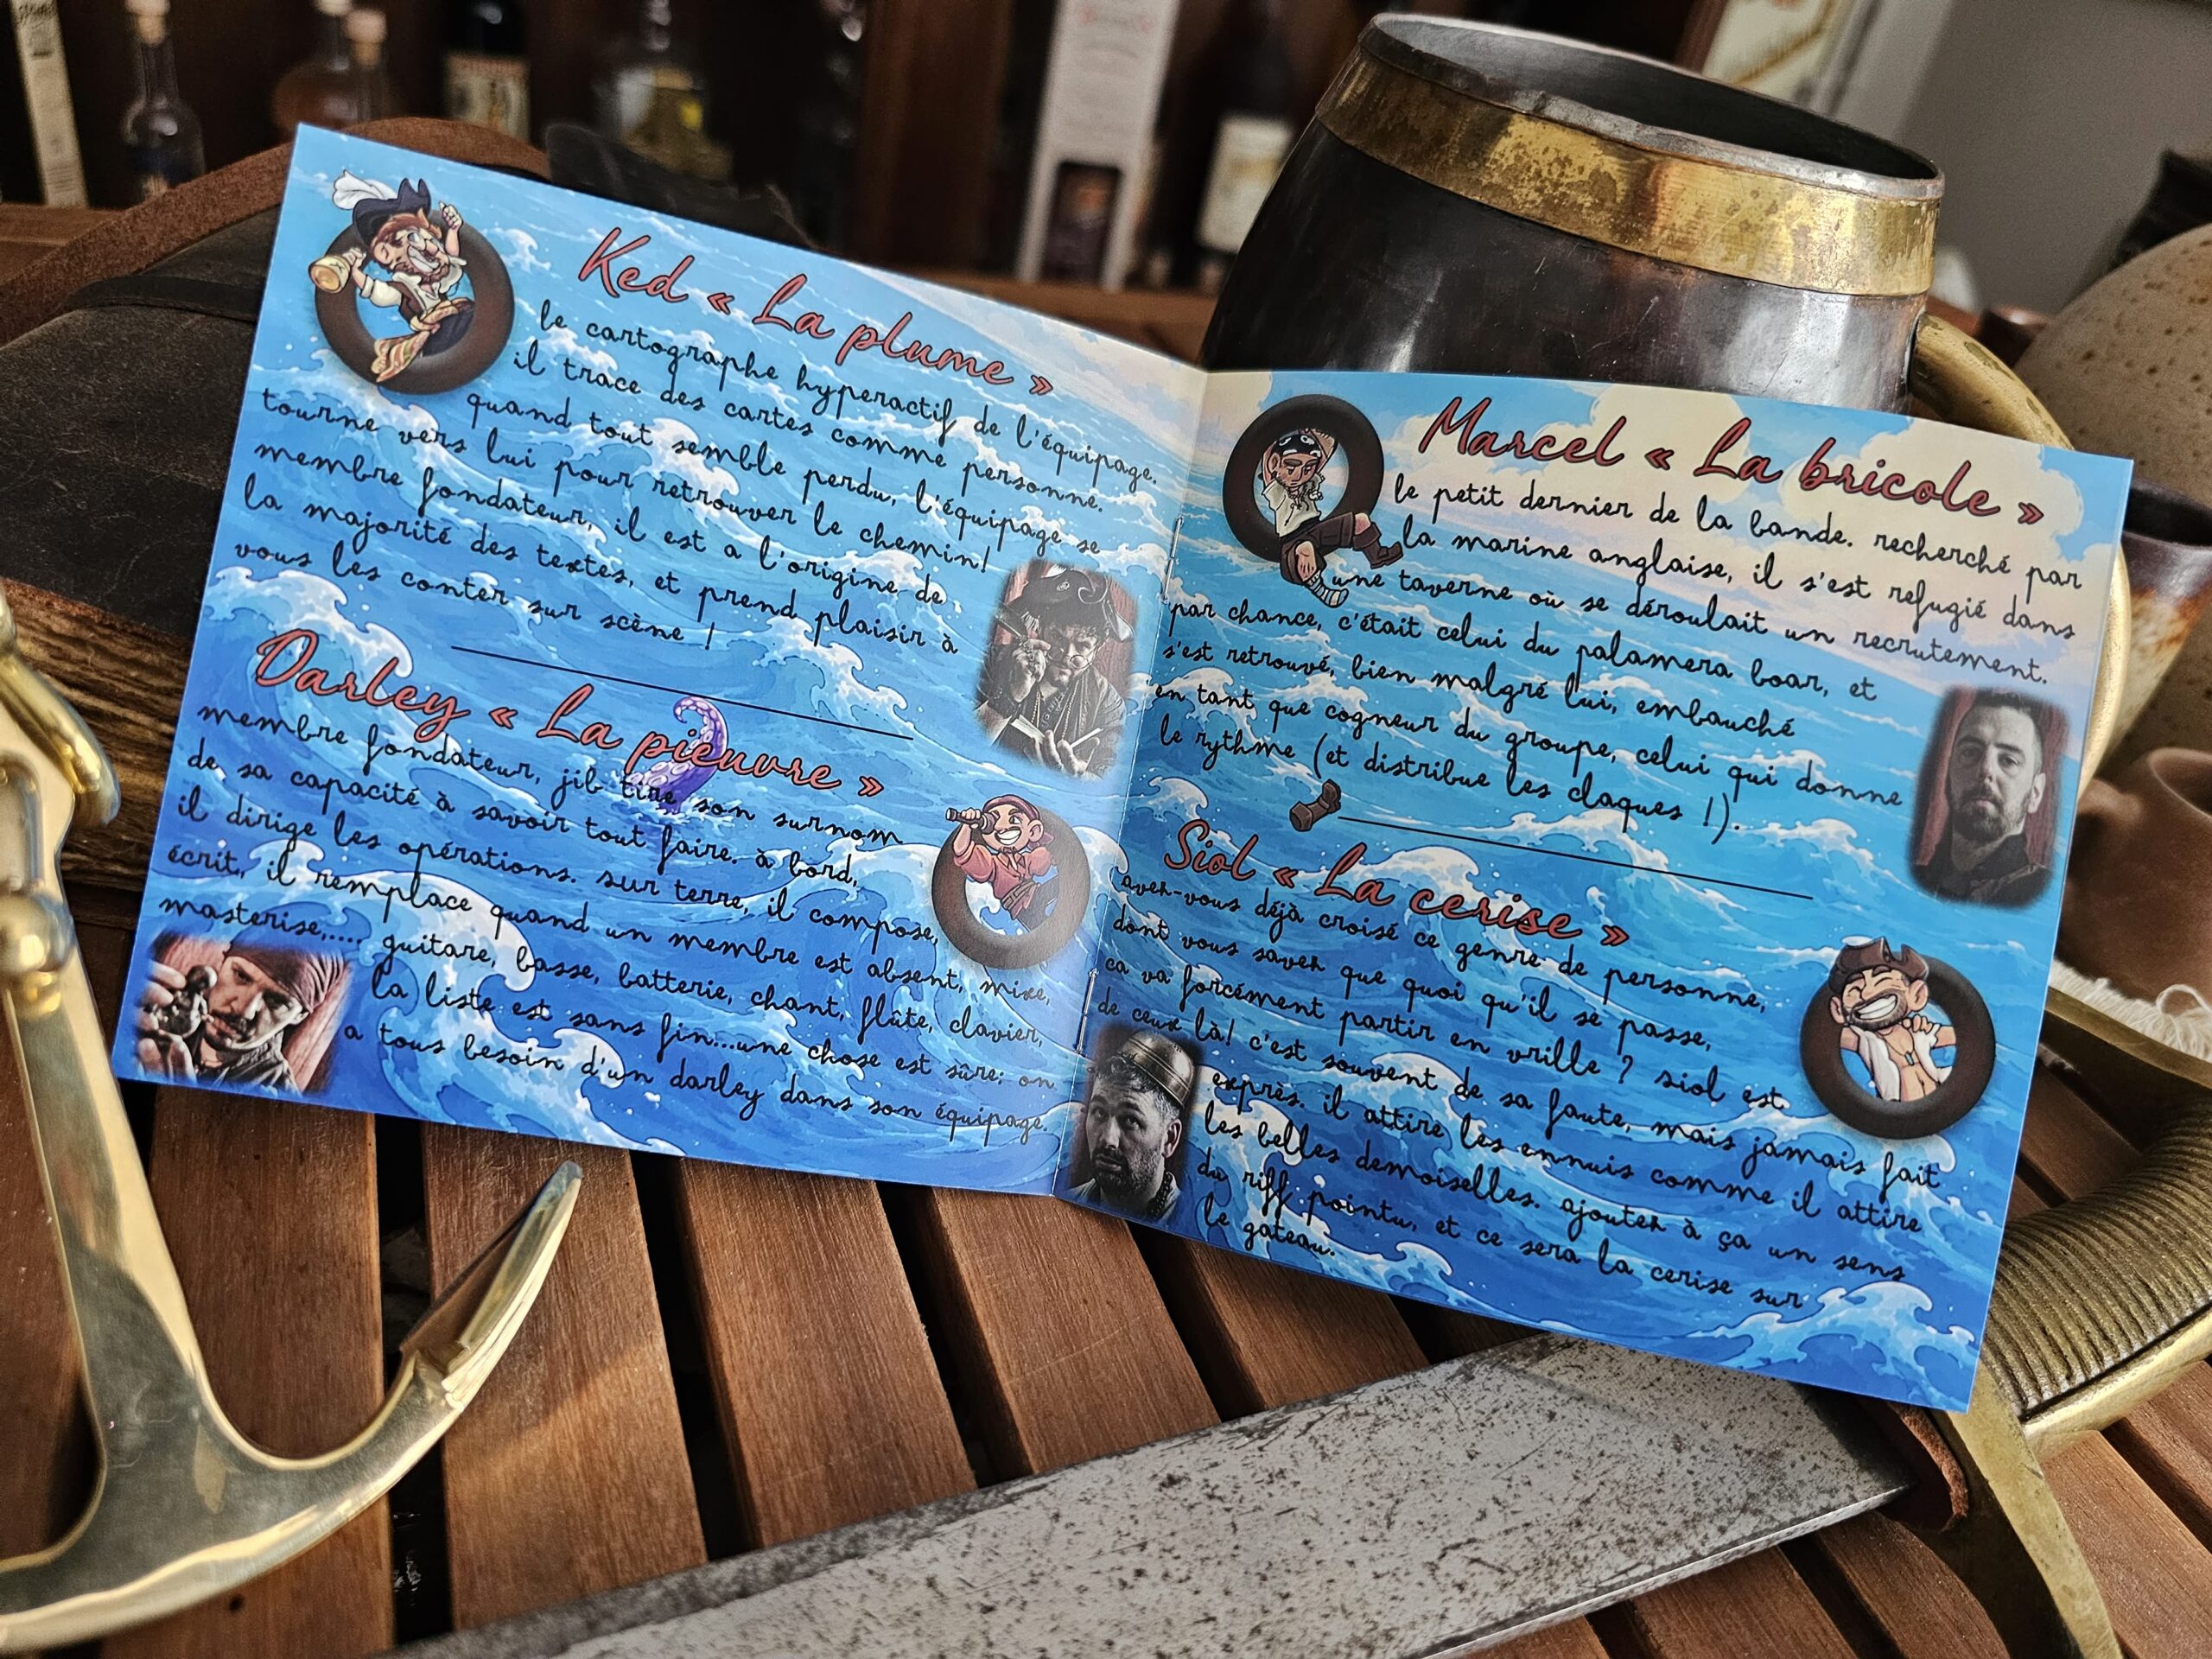 Ked « La plume »
le cartographe hyperactif de l'équipage.
il trace des cartes comme personne.
quand tout semble perdu, l'équipage se
tourne vers lui pour retrouver le chemin!
membre fondateur, il est a l'origine de
la majorité des textes, et prend plaisir à
vous les conter sur scène !
Darley « La pieuvre »
membre fondateur, jib tire son surnom
de sa capacité à savoir tout faire. à bord,
il dirige les opérations. sur terre, il compose,
écrit, il remplace quand un membre est absent, mixe,
masterise,.... guitare, basse, batterie, chant, flûte, clavier,
la liste est sans fin...une chose est sûre; on
a tous besoin d'un darley dans son équipage.
Marcel « La bricole »
le petit dernier de la bande. recherché par
la marine anglaise, il s'est refugié dans
une taverne où se déroulait un recrutement.
par chance, c'était celui du palamera boar, et
s'est retrouvé, bien malgré lui, embauché
en tant que cogneur du groupe, celui qui donne
le rythme (et distribue les claques !).
Siol « La cerise »
avez-vous déjà croisé ce genre de personne,
dont vous savez que quoi qu'il se passe,
ca va forcément partir en vrille ? siol est
de ceux là! c'est souvent de sa faute, mais jamais fait
exprès. il attire les ennuis comme il attire
les belles demoiselles. ajoutez à ça un sens
du riff pointu, et ce sera la cerise sur
le gateau.